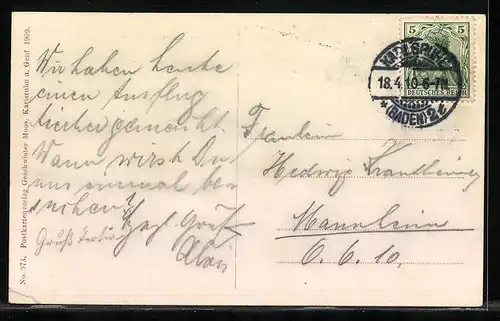 No. 973. Postkartenverlag Geschwister Moos, Karlsruhe u. Genf 1909.
Wir haben heute
einen Ausflug
hierher gemacht.
Wann wirst Du
uns einmal be-
suchen?
Gruß
5 5
DEUTSCHES REICH
KARLSRUHE
18.4.10.6-7N
* (BADEN) 2t
Fräulein
Hedwig
Mannheim
O. 6. 10.